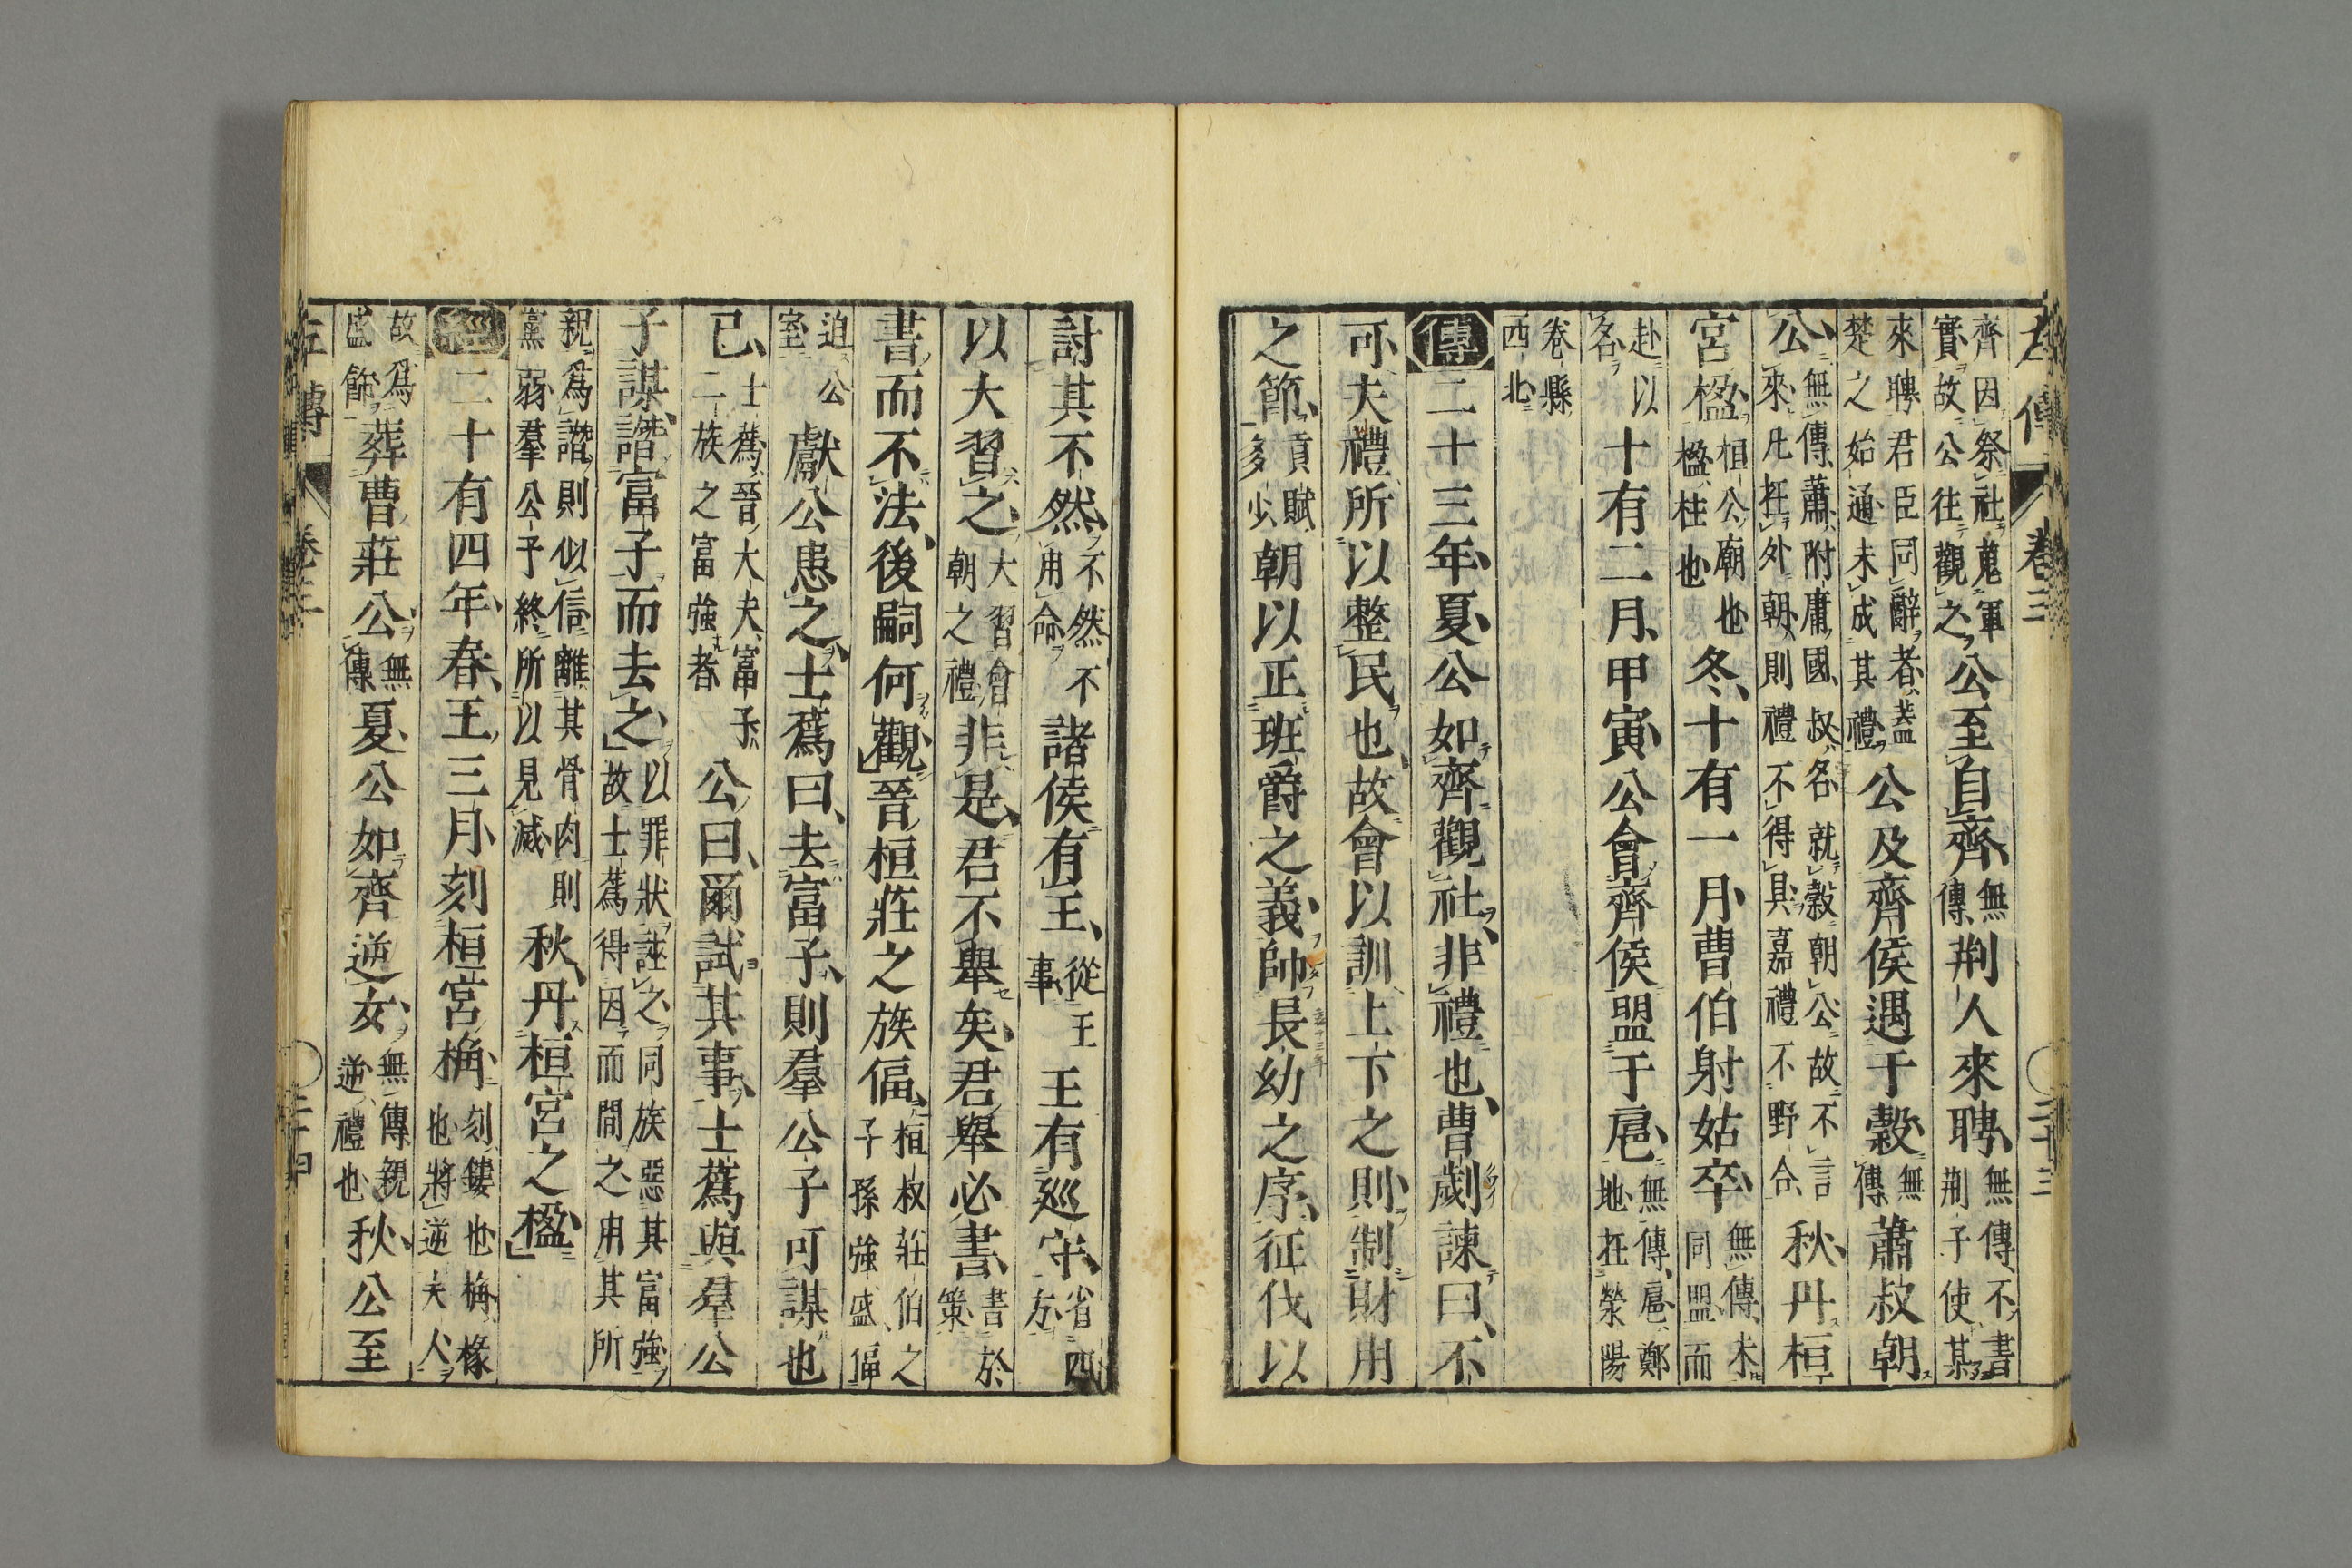 左傳 卷三 二十三
齊因祭社蒐軍實故公往觀之公至自齊無傳荆人來聘無傳不書荆子使某
來聘君臣同辭者蓋楚之始通未成其禮公及齊侯遇于穀無傳蕭叔朝
公無傳蕭附庸國叔名就穀朝公故不言來凡在外朝則禮不得具嘉禮不野合秋丹桓
宮楹桓公廟也楹柱也冬十有一月曹伯射姑卒無傳未同盟而
赴以名十有二月甲寅公會齊侯盟于扈無傳扈鄭地在滎陽
卷縣西北
傳二十三年夏公如齊觀社非禮也曹劌諫曰不
可夫禮所以整民也故會以訓上下之則制財用
之節貢賦多少朝以正班爵之義帥長幼之序征伐以
討其不然不然不用命諸侯有王從王事王有巡守省四方
以大習之大習會朝之禮非是君不舉矣君舉必書書於策
書而不法後嗣何觀晉桓莊之族偪桓叔莊伯之子孫強盛偪
迫公室獻公患之士蒍曰去富子則羣公子可謀也
已士蒍晉大夫富子二族之富強者公曰爾試其事士蒍與羣公
子謀譖富子而去之以罪狀誣之同族惡其富強故士蒍得因而間之用其所
親爲譖則似信離其骨肉則黨弱羣公子終所以見滅秋丹桓宮之楹
經二十有四年春王三月刻桓宮桷刻鏤也桷椽也將逆夫人
故爲盛飾葬曹莊公無傳夏公如齊逆女無傳親逆禮也秋公至
左傳 卷三 二十四